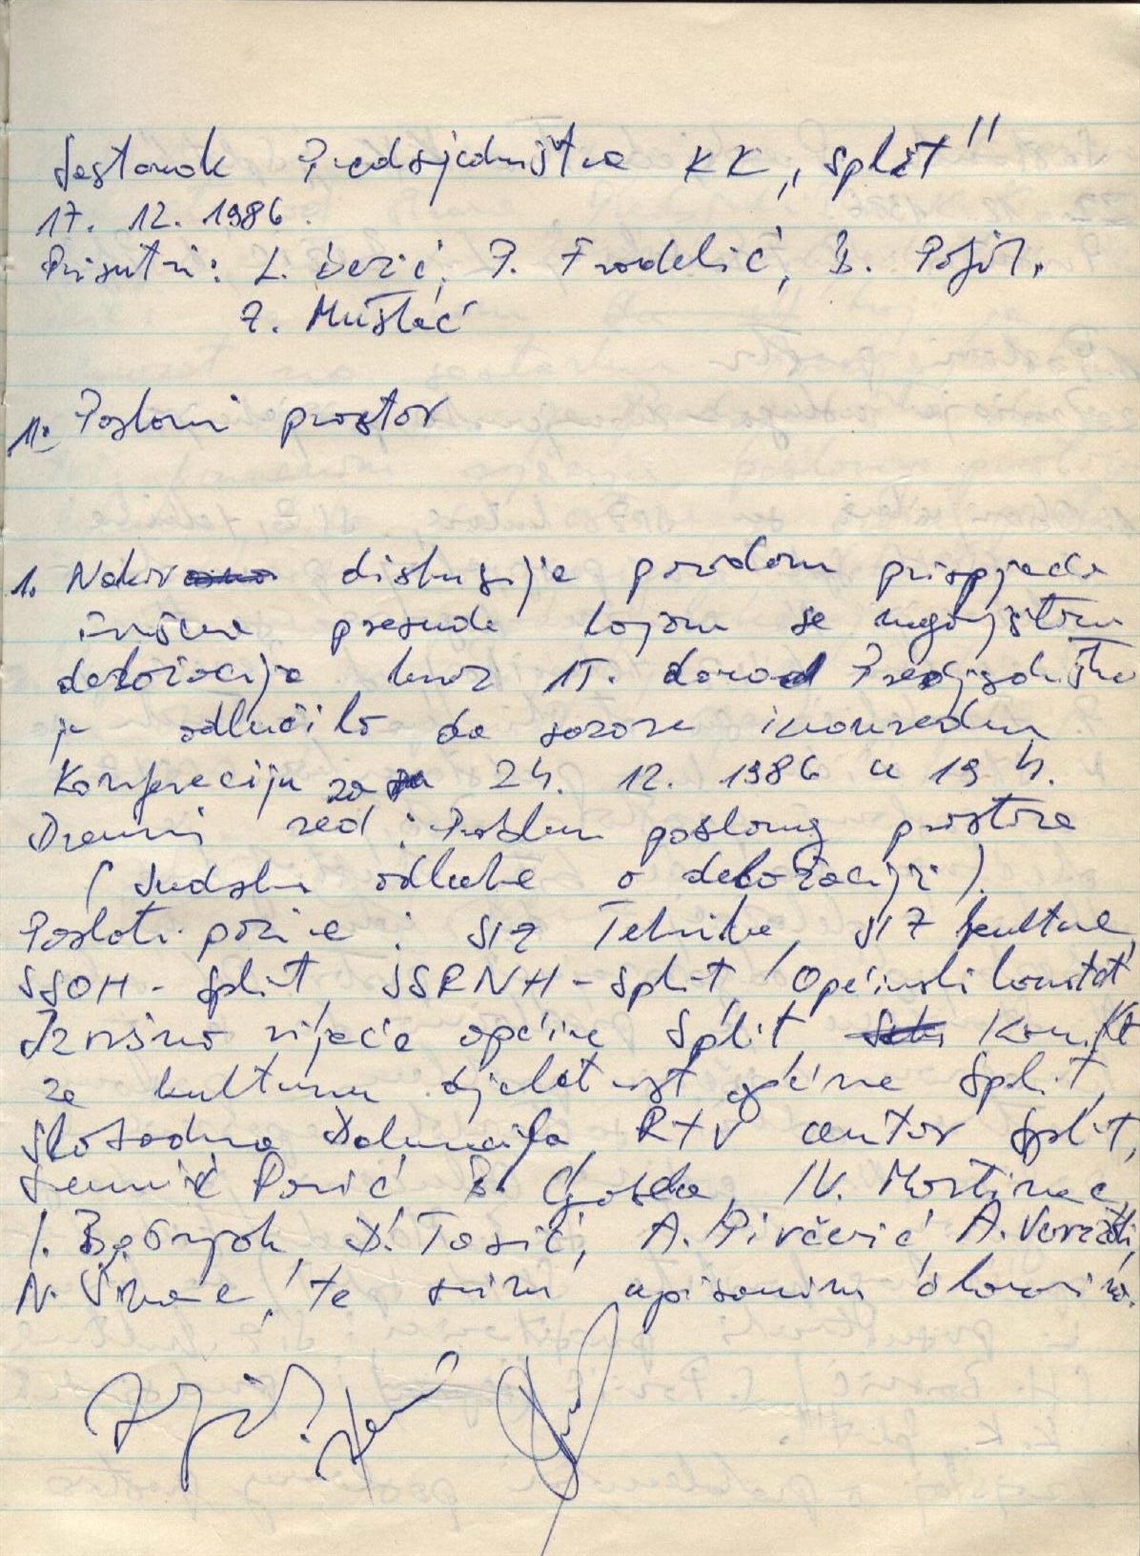 Sastanak Predsjedništva KK „Split"
17. 12. 1986.
Prisutni: P. Frodelić, B.
Z. Muštać
1. Poslovni prostor
1. Nakon diskusije povodom prispjeća
izvršne presude kojom se
deložacija kroz 15. dana Predsjedništvo
je odlučilo da sazove izvanrednu
Konferenciju za 24. 12. 1986 u 19 h.
Dnevni red: Problem poslovnog prostora
(Sudska odluka o deložaciji).
Poslati pozive: SIZ Tehnike, SIZ kulture,
SSOH - Split, SSRNH - Split, Općinski komitet
Izvršno vijeće općine Split Komitet
za kulturnu djelatnost općine Split,
Slobodna Dalmacija, RTV centar Split,
Perić, B. IV. Martinac,
D. Tosić, A. Pivčević, A.
N. te svim upisanim članovima.